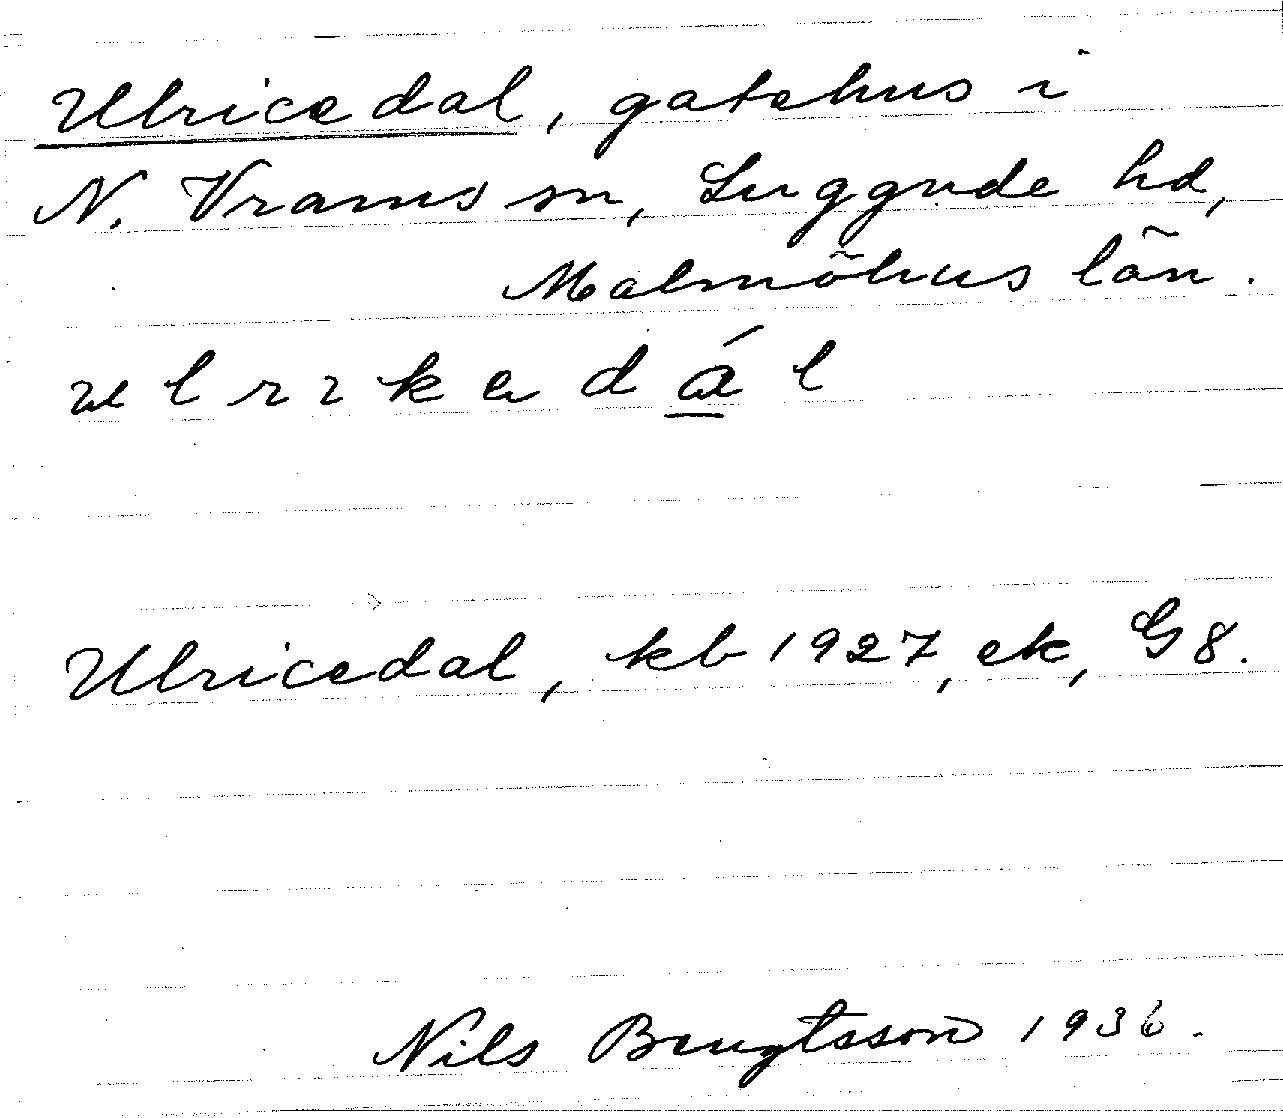 Ulricedal, gatehus i
N. Vrams sn, Luggude hd,
Malmöhus län.
ulrikadál
Ulricedal, kb 1927, ek, G8.
Nils Bengtsson 1936.